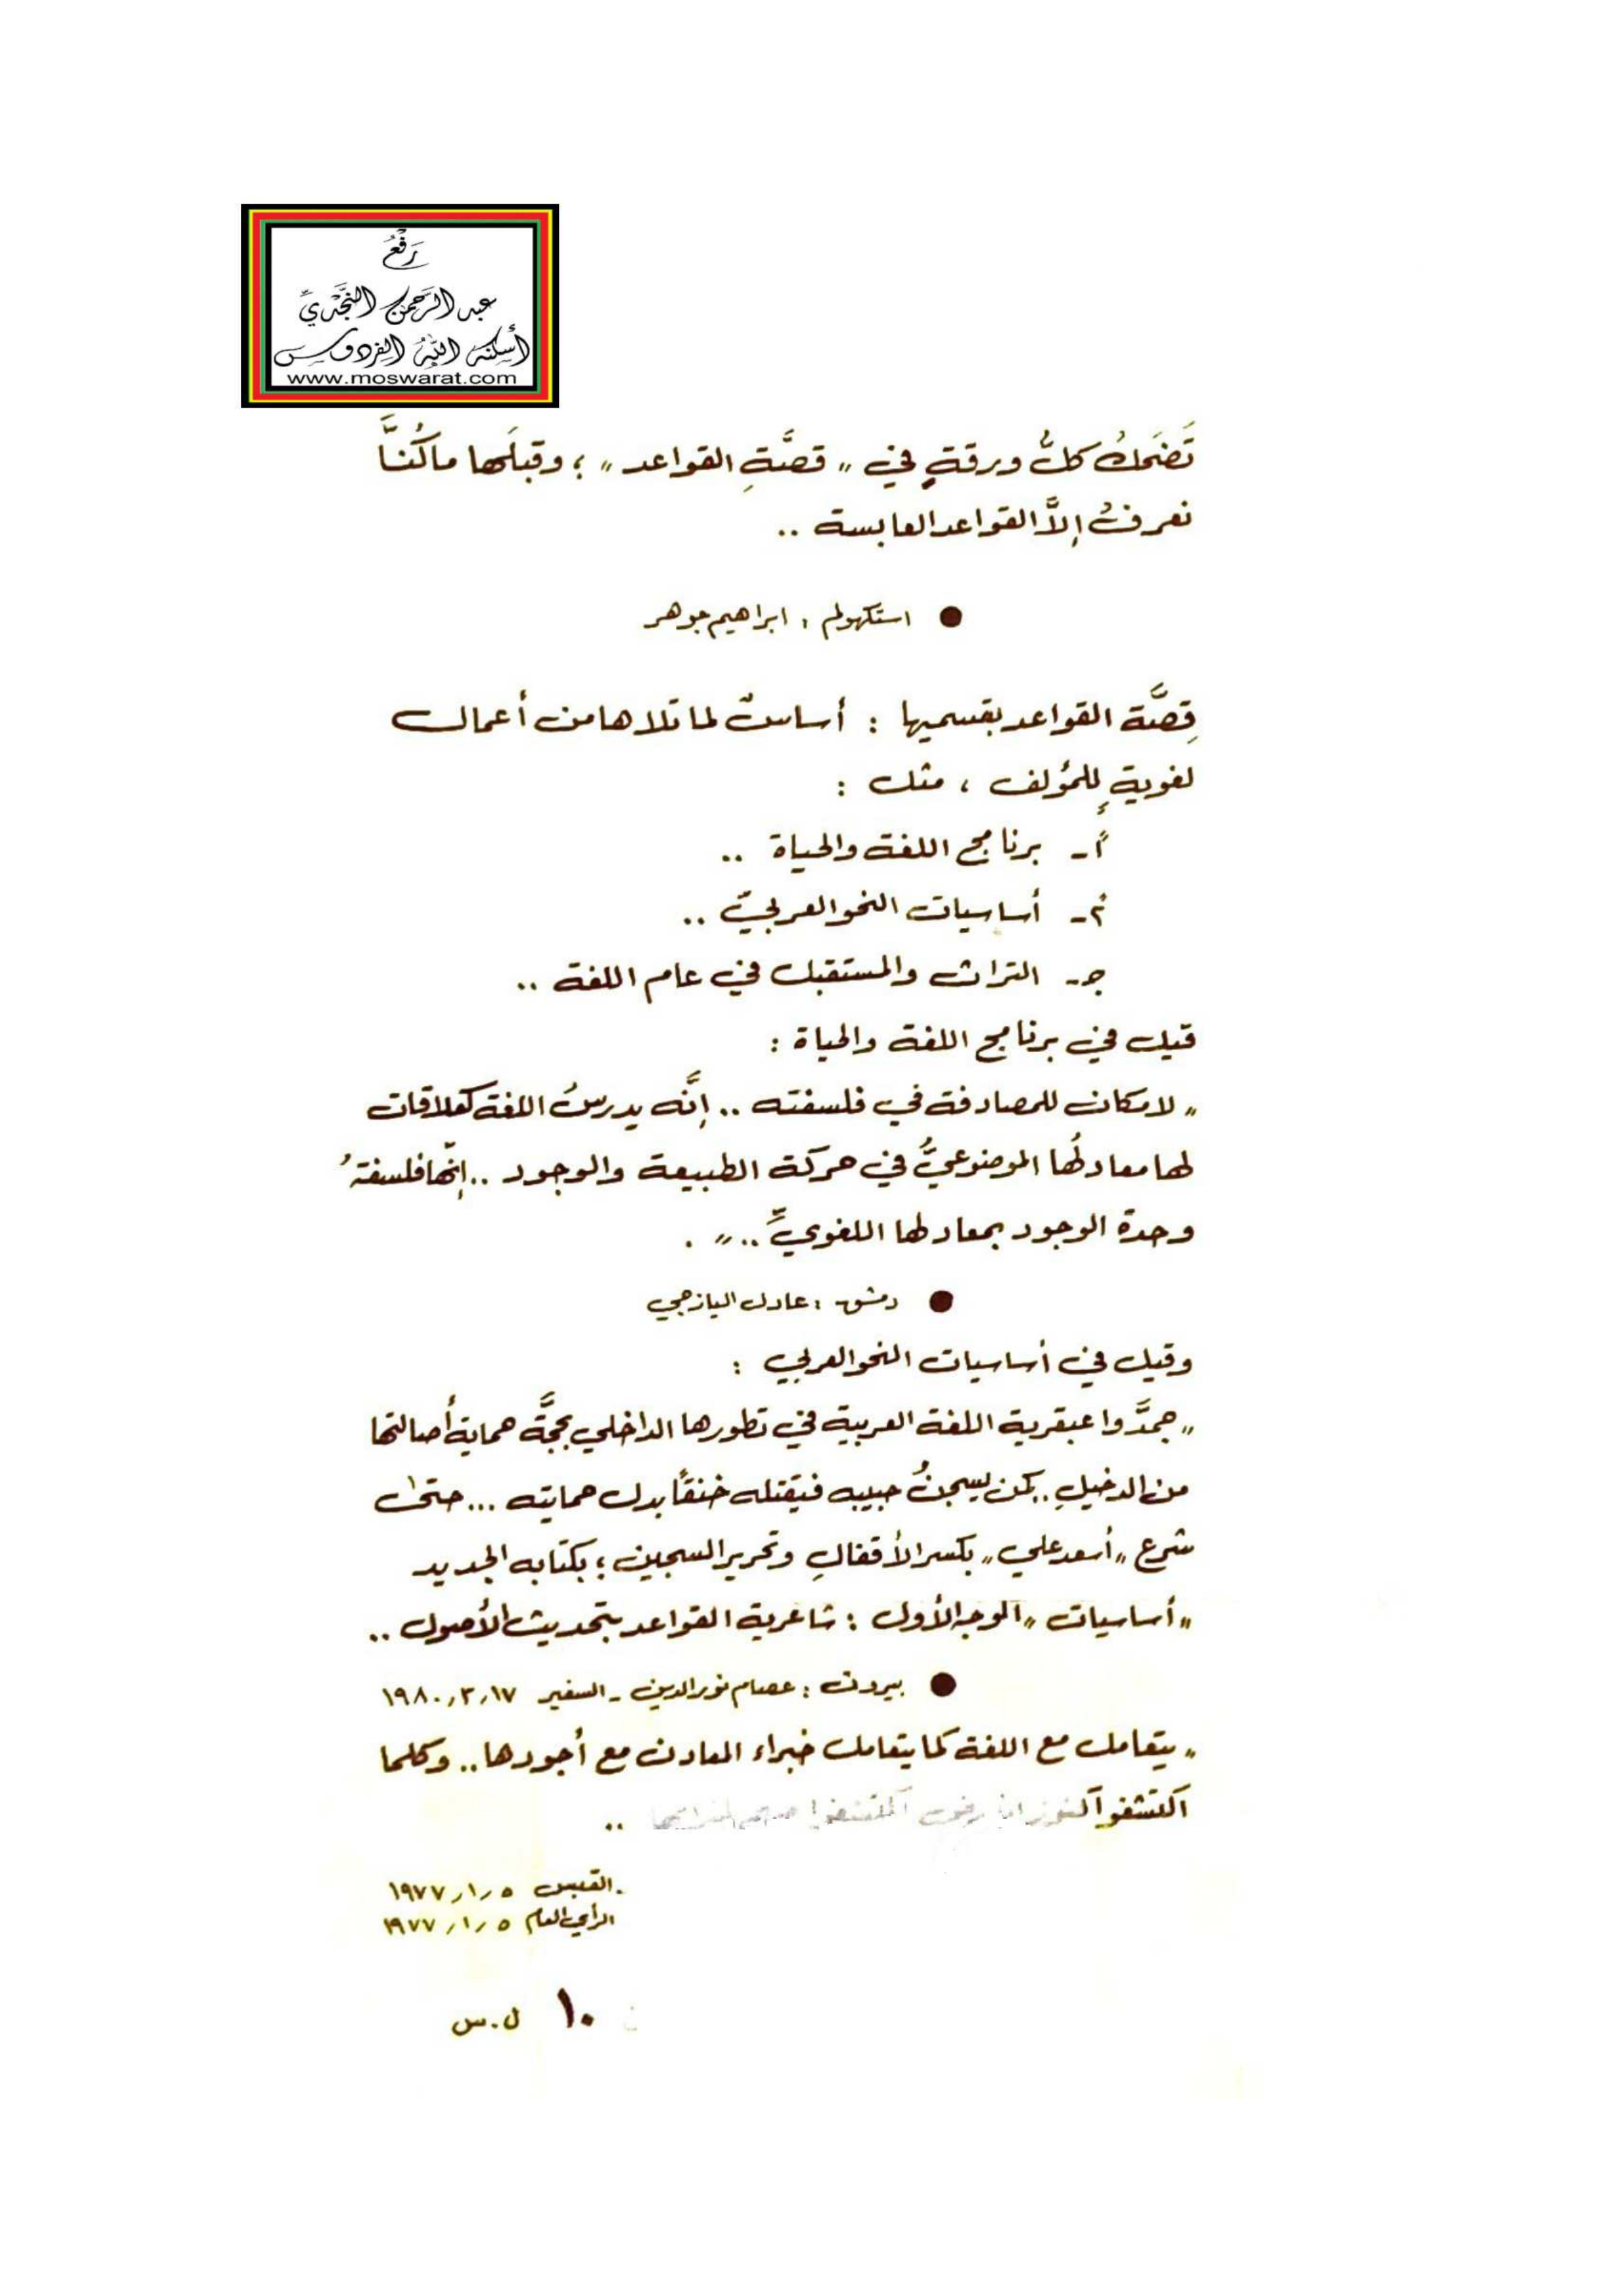 رَفْعُ
عبد الرَّحمن النَّجْديِّ
أسكنه اللهُ الفردوس
www.moswarat.com
تَضحَكُ كلُّ ورقةٍ في „ قصَّةِ القواعد „ ؛ وقبلَها ماكُنَّا
نعرفُ إلاَّ القواعد العابسة ..
● استكهولم : ابراهيم جوهر
قِصَّة القواعد بقسميها : أساسٌ لما تلاها من أعمال
لغويةٍ للمؤلف ، مثل :
أ - برنامج اللغة والحياة ..
٢ - أساسيات النحو العربيّ ..
جـ - التراث والمستقبل في عام اللغة ..
قيل في برنامج اللغة والحياة :
„ لا مكان للمصادفة في فلسفته .. إنَّه يدرسُ اللغة كعلاقات
لها معادلُها الموضوعيُّ في حركة الطبيعة والوجود .. إنّها فلسفةُ
وحدة الوجود بمعادلها اللغويِّ .. „ .
● دمشق : عادل اليازجي
وقيل في أساسيات النحو العربي :
„ جمَّدوا عبقرية اللغة العربية في تطورها الداخلي بحجَّة حماية أصالتها
من الدخيلِ .. كمن يسجنُ حبيبه فيقتله خنقًا بدل حمايته ... حتى
شرع „ أسعد علي „ بكسر الأقفالِ وتحرير السجين ؛ بكتابه الجديد
„ أساسيات „ الوجه الأول : شاعرية القواعد بتحديث الأصول ..
● بيروت : عصام نور الدين - السفير ١٧/٣/١٩٨٠
„ يتعامل مع اللغة كما يتعامل خبراء المعادن مع أجودها .. وكلما
اكتشفوا كنوز اكتشفوا ..
القبس ٥/١/١٩٧٧
الرأي العام ٥/١/١٩٧٧
١٠ ل.س